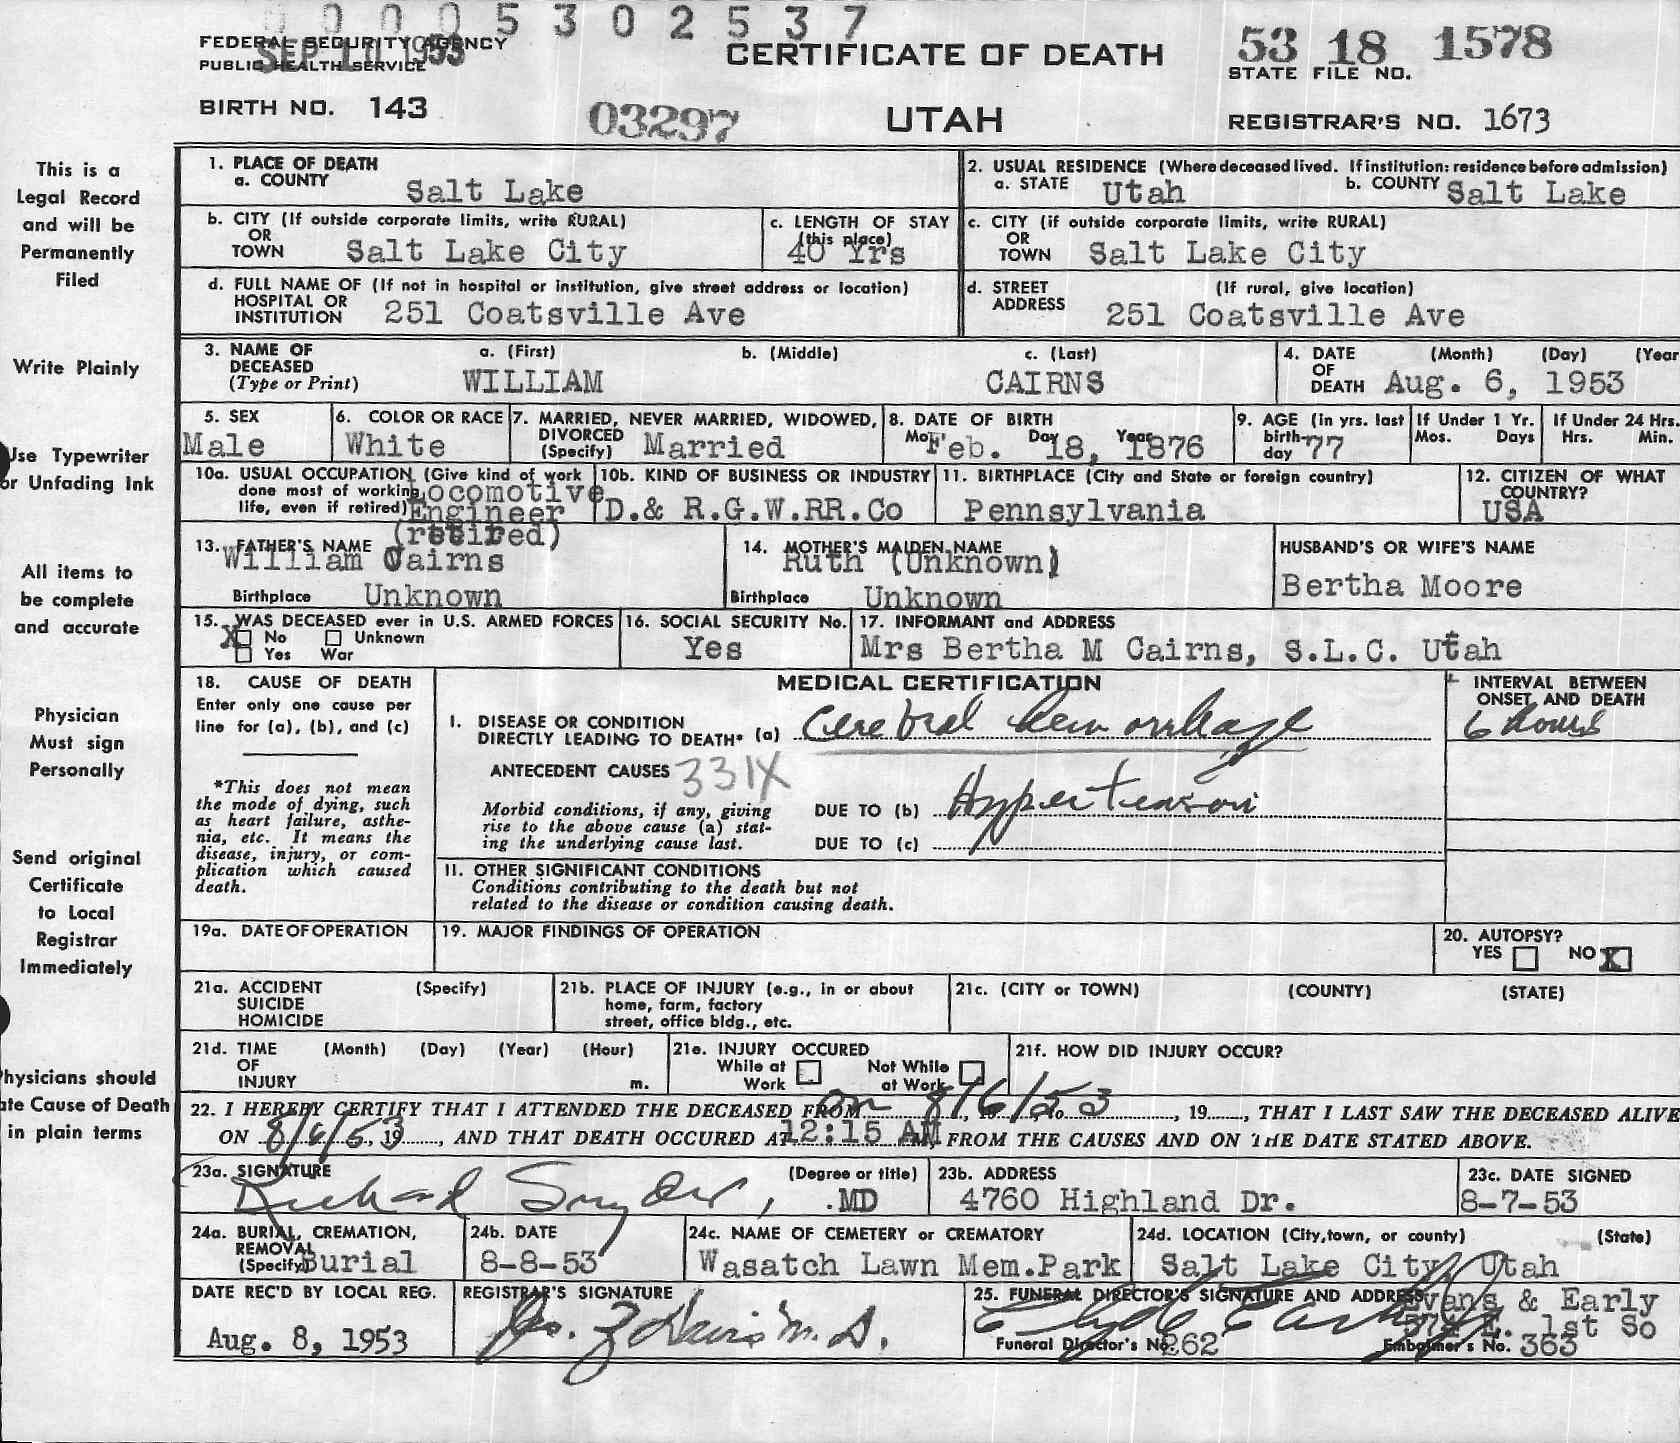 0 0 0 0 5 3 0 2 5 3 7
FEDERAL SECURITY AGENCY
PUBLIC HEALTH SERVICE
SEP 10 1953
CERTIFICATE OF DEATH
53 18 1578
STATE FILE NO.
BIRTH NO. 143
03297
UTAH
REGISTRAR'S NO. 1673
This is a
Legal Record
and will be
Permanently
Filed
Write Plainly
Use Typewriter
or Unfading Ink
All items to
be complete
and accurate
Physician
Must sign
Personally
Send original
Certificate
to Local
Registrar
Immediately
Physicians should
ate Cause of Death
in plain terms
1. PLACE OF DEATH
a. COUNTY Salt Lake
2. USUAL RESIDENCE (Where deceased lived. If institution: residence before admission)
a. STATE Utah b. COUNTY Salt Lake
b. CITY (If outside corporate limits, write RURAL)
OR
TOWN Salt Lake City
c. LENGTH OF STAY
(this place)
40 Yrs
c. CITY (if outside corporate limits, write RURAL)
OR
TOWN Salt Lake City
d. FULL NAME OF (If not in hospital or institution, give street address or location)
HOSPITAL OR
INSTITUTION 251 Coatsville Ave
d. STREET (If rural, give location)
ADDRESS 251 Coatsville Ave
3. NAME OF a. (First) b. (Middle) c. (Last)
DECEASED
(Type or Print) WILLIAM CAIRNS
4. DATE (Month) (Day) (Year
OF
DEATH Aug. 6, 1953
5. SEX
Male
6. COLOR OR RACE
White
7. MARRIED, NEVER MARRIED, WIDOWED,
DIVORCED
(Specify) Married
8. DATE OF BIRTH
Mo. Day Year
Feb. 18, 1876
9. AGE (in yrs. last
birth-
day 77
If Under 1 Yr.
Mos. Days
If Under 24 Hrs.
Hrs. Min.
10a. USUAL OCCUPATION (Give kind of work
done most of working
life, even if retired) Locomotive
Engineer
(retired)
10b. KIND OF BUSINESS OR INDUSTRY
D.& R.G.W.RR.Co
11. BIRTHPLACE (City and State or foreign country)
Pennsylvania
12. CITIZEN OF WHAT
COUNTRY?
USA
13. FATHER'S NAME
William Cairns
Birthplace Unknown
14. MOTHER'S MAIDEN NAME
Ruth (Unknown)
Birthplace Unknown
HUSBAND'S OR WIFE'S NAME
Bertha Moore
15. WAS DECEASED ever in U.S. ARMED FORCES
X No Unknown
Yes War
16. SOCIAL SECURITY No.
Yes
17. INFORMANT and ADDRESS
Mrs Bertha M Cairns, S.L.C. Utah
18. CAUSE OF DEATH
Enter only one cause per
line for (a), (b), and (c)
*This does not mean
the mode of dying, such
as heart failure, asthe-
nia, etc. It means the
disease, injury, or com-
plication which caused
death.
MEDICAL CERTIFICATION
I. DISEASE OR CONDITION
DIRECTLY LEADING TO DEATH* (a) Cerebral hemorrhage
ANTECEDENT CAUSES 331X
Morbid conditions, if any, giving
rise to the above cause (a) stat-
ing the underlying cause last.
DUE TO (b) Hypertension
DUE TO (c)
INTERVAL BETWEEN
ONSET AND DEATH
6 hours
11. OTHER SIGNIFICANT CONDITIONS
Conditions contributing to the death but not
related to the disease or condition causing death.
19a. DATE OF OPERATION
19. MAJOR FINDINGS OF OPERATION
20. AUTOPSY?
YES NO X
21a. ACCIDENT (Specify)
SUICIDE
HOMICIDE
21b. PLACE OF INJURY (e.g., in or about
home, farm, factory
street, office bldg., etc.
21c. (CITY or TOWN) (COUNTY) (STATE)
21d. TIME (Month) (Day) (Year) (Hour)
OF
INJURY m.
21e. INJURY OCCURED
While at Not While
Work at Work
21f. HOW DID INJURY OCCUR?
22. I HEREBY CERTIFY THAT I ATTENDED THE DECEASED FROM on 8/6/53, 19......, THAT I LAST SAW THE DECEASED ALIVE
ON 8/6/53, 19......, AND THAT DEATH OCCURED AT 12:15 AM, FROM THE CAUSES AND ON THE DATE STATED ABOVE.
23a. SIGNATURE (Degree or title)
Richard Snyder, .MD
23b. ADDRESS
4760 Highland Dr.
23c. DATE SIGNED
8-7-53
24a. BURIAL, CREMATION,
REMOVAL
(Specify) Burial
24b. DATE
8-8-53
24c. NAME OF CEMETERY or CREMATORY
Wasatch Lawn Mem.Park
24d. LOCATION (City,town, or county) (State)
Salt Lake City, Utah
DATE REC'D BY LOCAL REG.
Aug. 8, 1953
REGISTRAR'S SIGNATURE
Jos. Z Davis M.D.
25. FUNERAL DIRECTOR'S SIGNATURE AND ADDRESS
Clyde Early
Evans & Early
574 E. 1st So
Funeral Director's No. 262
Embalmer's No. 363